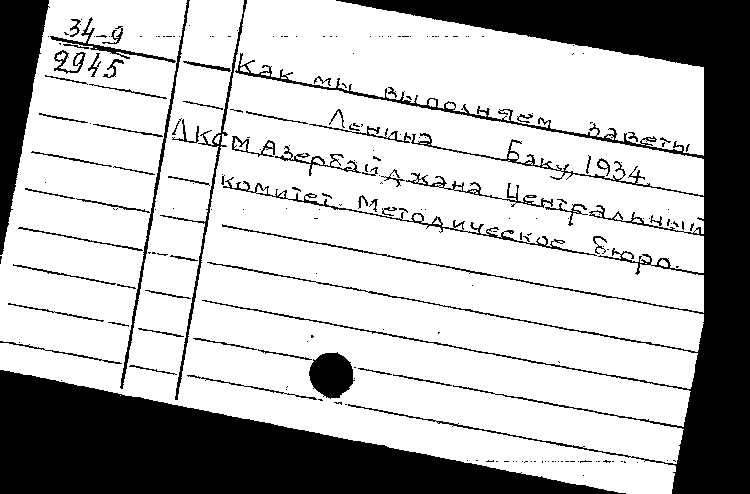 34-9
2945
Как мы выполняем заветы
Ленина Баку, 1934.
ЛКСМ Азербайджана Центральный
комитет. Методическое бюро.